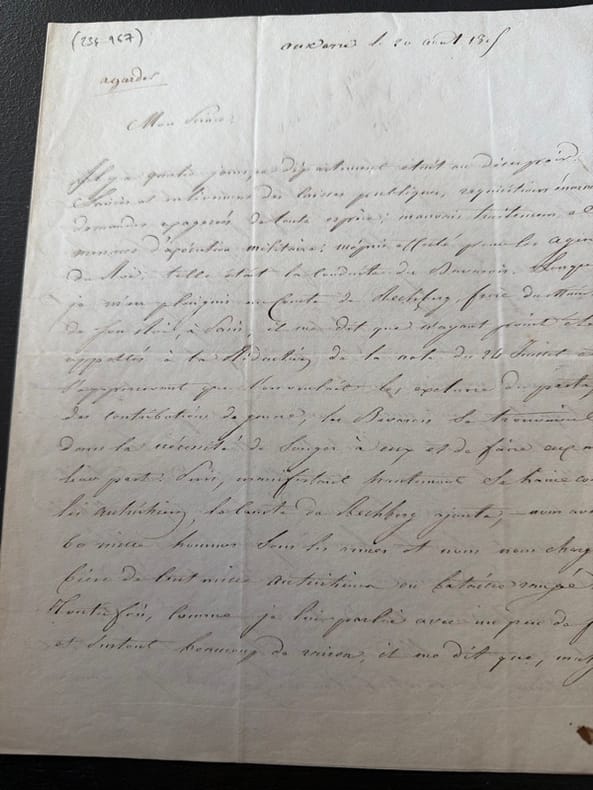 (234-967)
auxerre le 20 août 1815
agardes
Mon Prince,
Il y a quatre jours, ce département était au désespoir.
Chasses et enlèvemens des caisses publiques, réquisitions énorm
demandes exagerés de toute espèce; mauvais traitemens et
menaces d'exécution militaire; mépris affecté pour les agen
du Roi, telle était la conduite des Bavarois. Lorsque
je m'en plaignis au Comte de Rechberg, frère du
de son état, à Paris, il me dit que n'ayant point été
appellés à la Rédaction de la note du 24 Juillet et
s'appercevant que l'on voulait les exclure du partage
des contributions de guerre, les Bavarois se trouvaient
dans la nécessité de songer à eux et de faire eux m
leur part. Puis, manifestant hautement sa haine con
les autrichiens, le Comte de Rechberg ajouta, nous avo
60 mille hommes sous les armes et nous nous charg
bien de cent mille autrichiens en bataille rangée
Toutefois, comme je lui parlai avec un peu de f
et surtout beaucoup de raison, il me dit que,